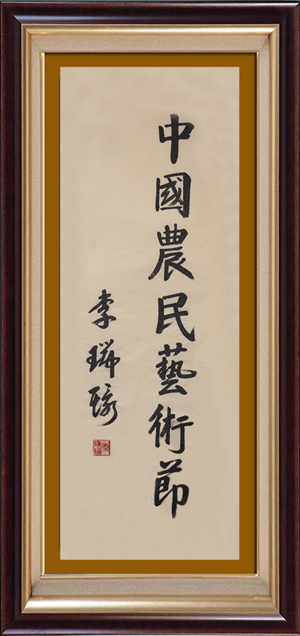 中國農民藝術節
李瑞環